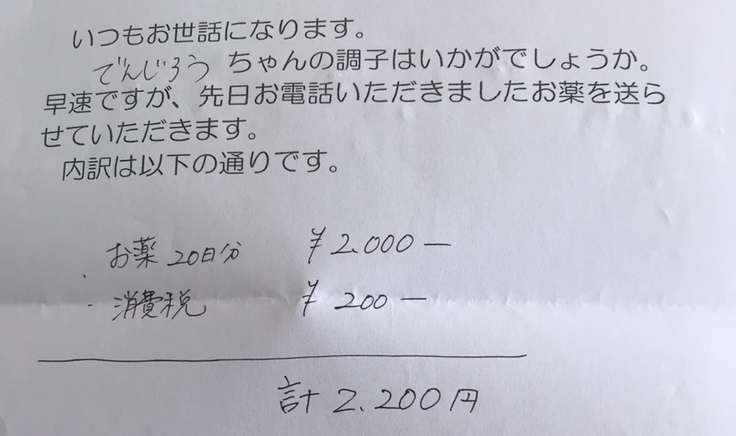 いつもお世話になります。
でんじろう ちゃんの調子はいかがでしょうか。
早速ですが、先日お電話いただきましたお薬を送ら
せていただきます。
内訳は以下の通りです。
お薬 20日分 ¥2.000ー
・消費税 ¥ 200ー
計 2.200円